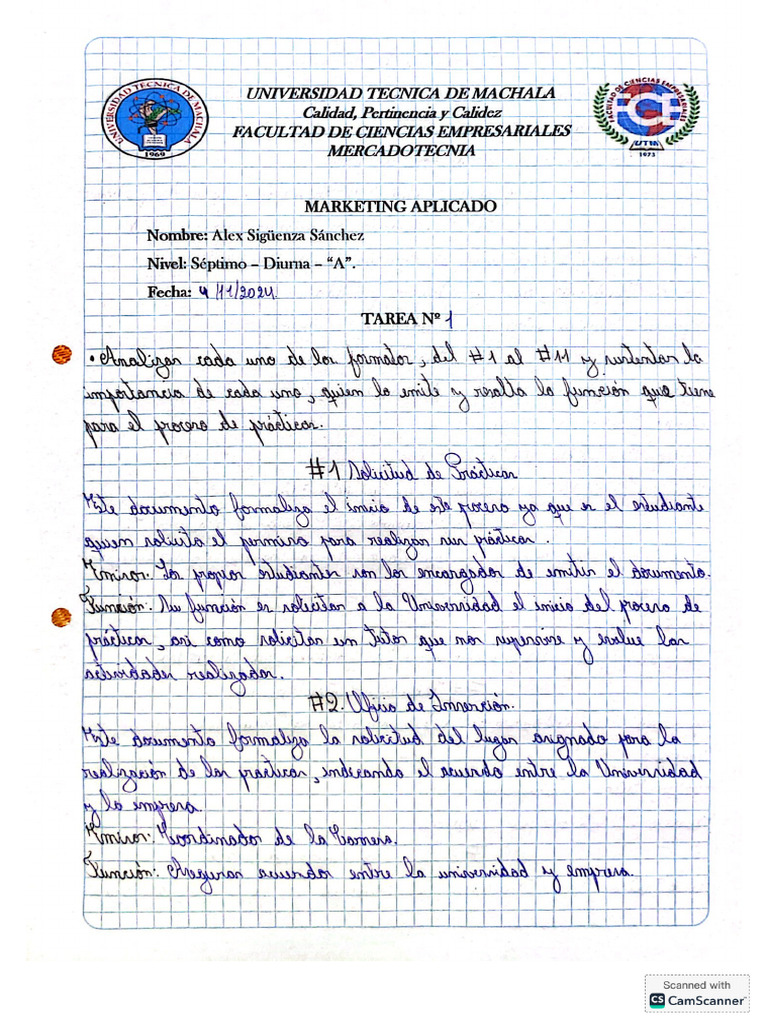 UNIVERSIDAD TECNICA DE MACHALA
Calidad, Pertinencia y Calidez
FACULTAD DE CIENCIAS EMPRESARIALES
MERCADOTECNIA
UNIVERSIDAD TECNICA DE MACHALA
1969
FACULTAD DE CIENCIAS EMPRESARIALES
FCE
UTM
1973
MARKETING APLICADO
Nombre: Alex Sigüenza Sánchez
Nivel: Séptimo – Diurna – “A”.
Fecha: 4/11/2024
TAREA Nº 1
• Analizar cada uno de los formatos, del #1 al #11 y sustentar la
importancia de cada uno, quien lo emite y resalta la función que tiene
para el proceso de prácticas.
#1 Solicitud de Prácticas
Este documento formaliza el inicio de este proceso ya que es el estudiante
quien solicita el permiso para realizar sus prácticas.
Emisor: Los propios estudiantes son los encargados de emitir el documento.
Función: Su función es solicitar a la Universidad el inicio del proceso de
prácticas, asi como solicitar un tutor que nos supervise y evalue las
actividades realizadas.
#2. Oficio de Inserción.
Este documento formaliza la solicitud del lugar asignado para la
realización de las practicas, indicando el acuerdo entre la Universidad
y la empresa.
Emisor: Coordinador de la Carrera.
Función: Asegurar acuerdos entre la universidad y empresa.
Scanned with
CS CamScanner